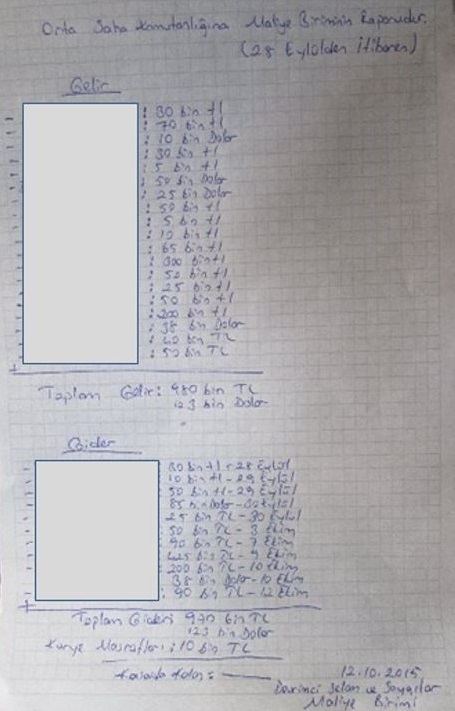 Orta Saha Komutanlığına Maliye Biriminin Raporudur.
(28 Eylülden İtibaren)
Gelir
: 30 bin tl
: 70 bin tl
: 10 bin Dolar
: 30 bin tl
: 5 bin tl
: 50 bin Dolar
: 25 bin Dolar
: 50 bin tl
: 5 bin tl
: 10 bin tl
: 65 bin tl
: 300 bin tl
: 50 bin tl
: 25 bin tl
: 50 bin tl
: 200 bin tl
: 38 bin Dolar
: 40 bin TL
: 50 bin TL
Toplam Gelir: 980 bin TL
123 bin Dolar
Gider
30 bin tl - 28 Eylül
10 bin tl - 29 Eylül
50 bin tl - 29 Eylül
85 bin Dolar - Eylül
25 bin TL - 30 Eylül
50 bin TL - 3 Ekim
90 bin TL - 7 Ekim
425 bin TL - 9 Ekim
200 bin TL - 10 Ekim
38 bin Dolar - 10 Ekim
: 90 bin TL - 12 Ekim
Toplam Gider: 970 bin TL
123 bin Dolar
Kurye Masrafları: 10 bin TL
Kasada Kalan:
12.10.2015
Devrimci Selam ve Saygılar
Maliye Birimi